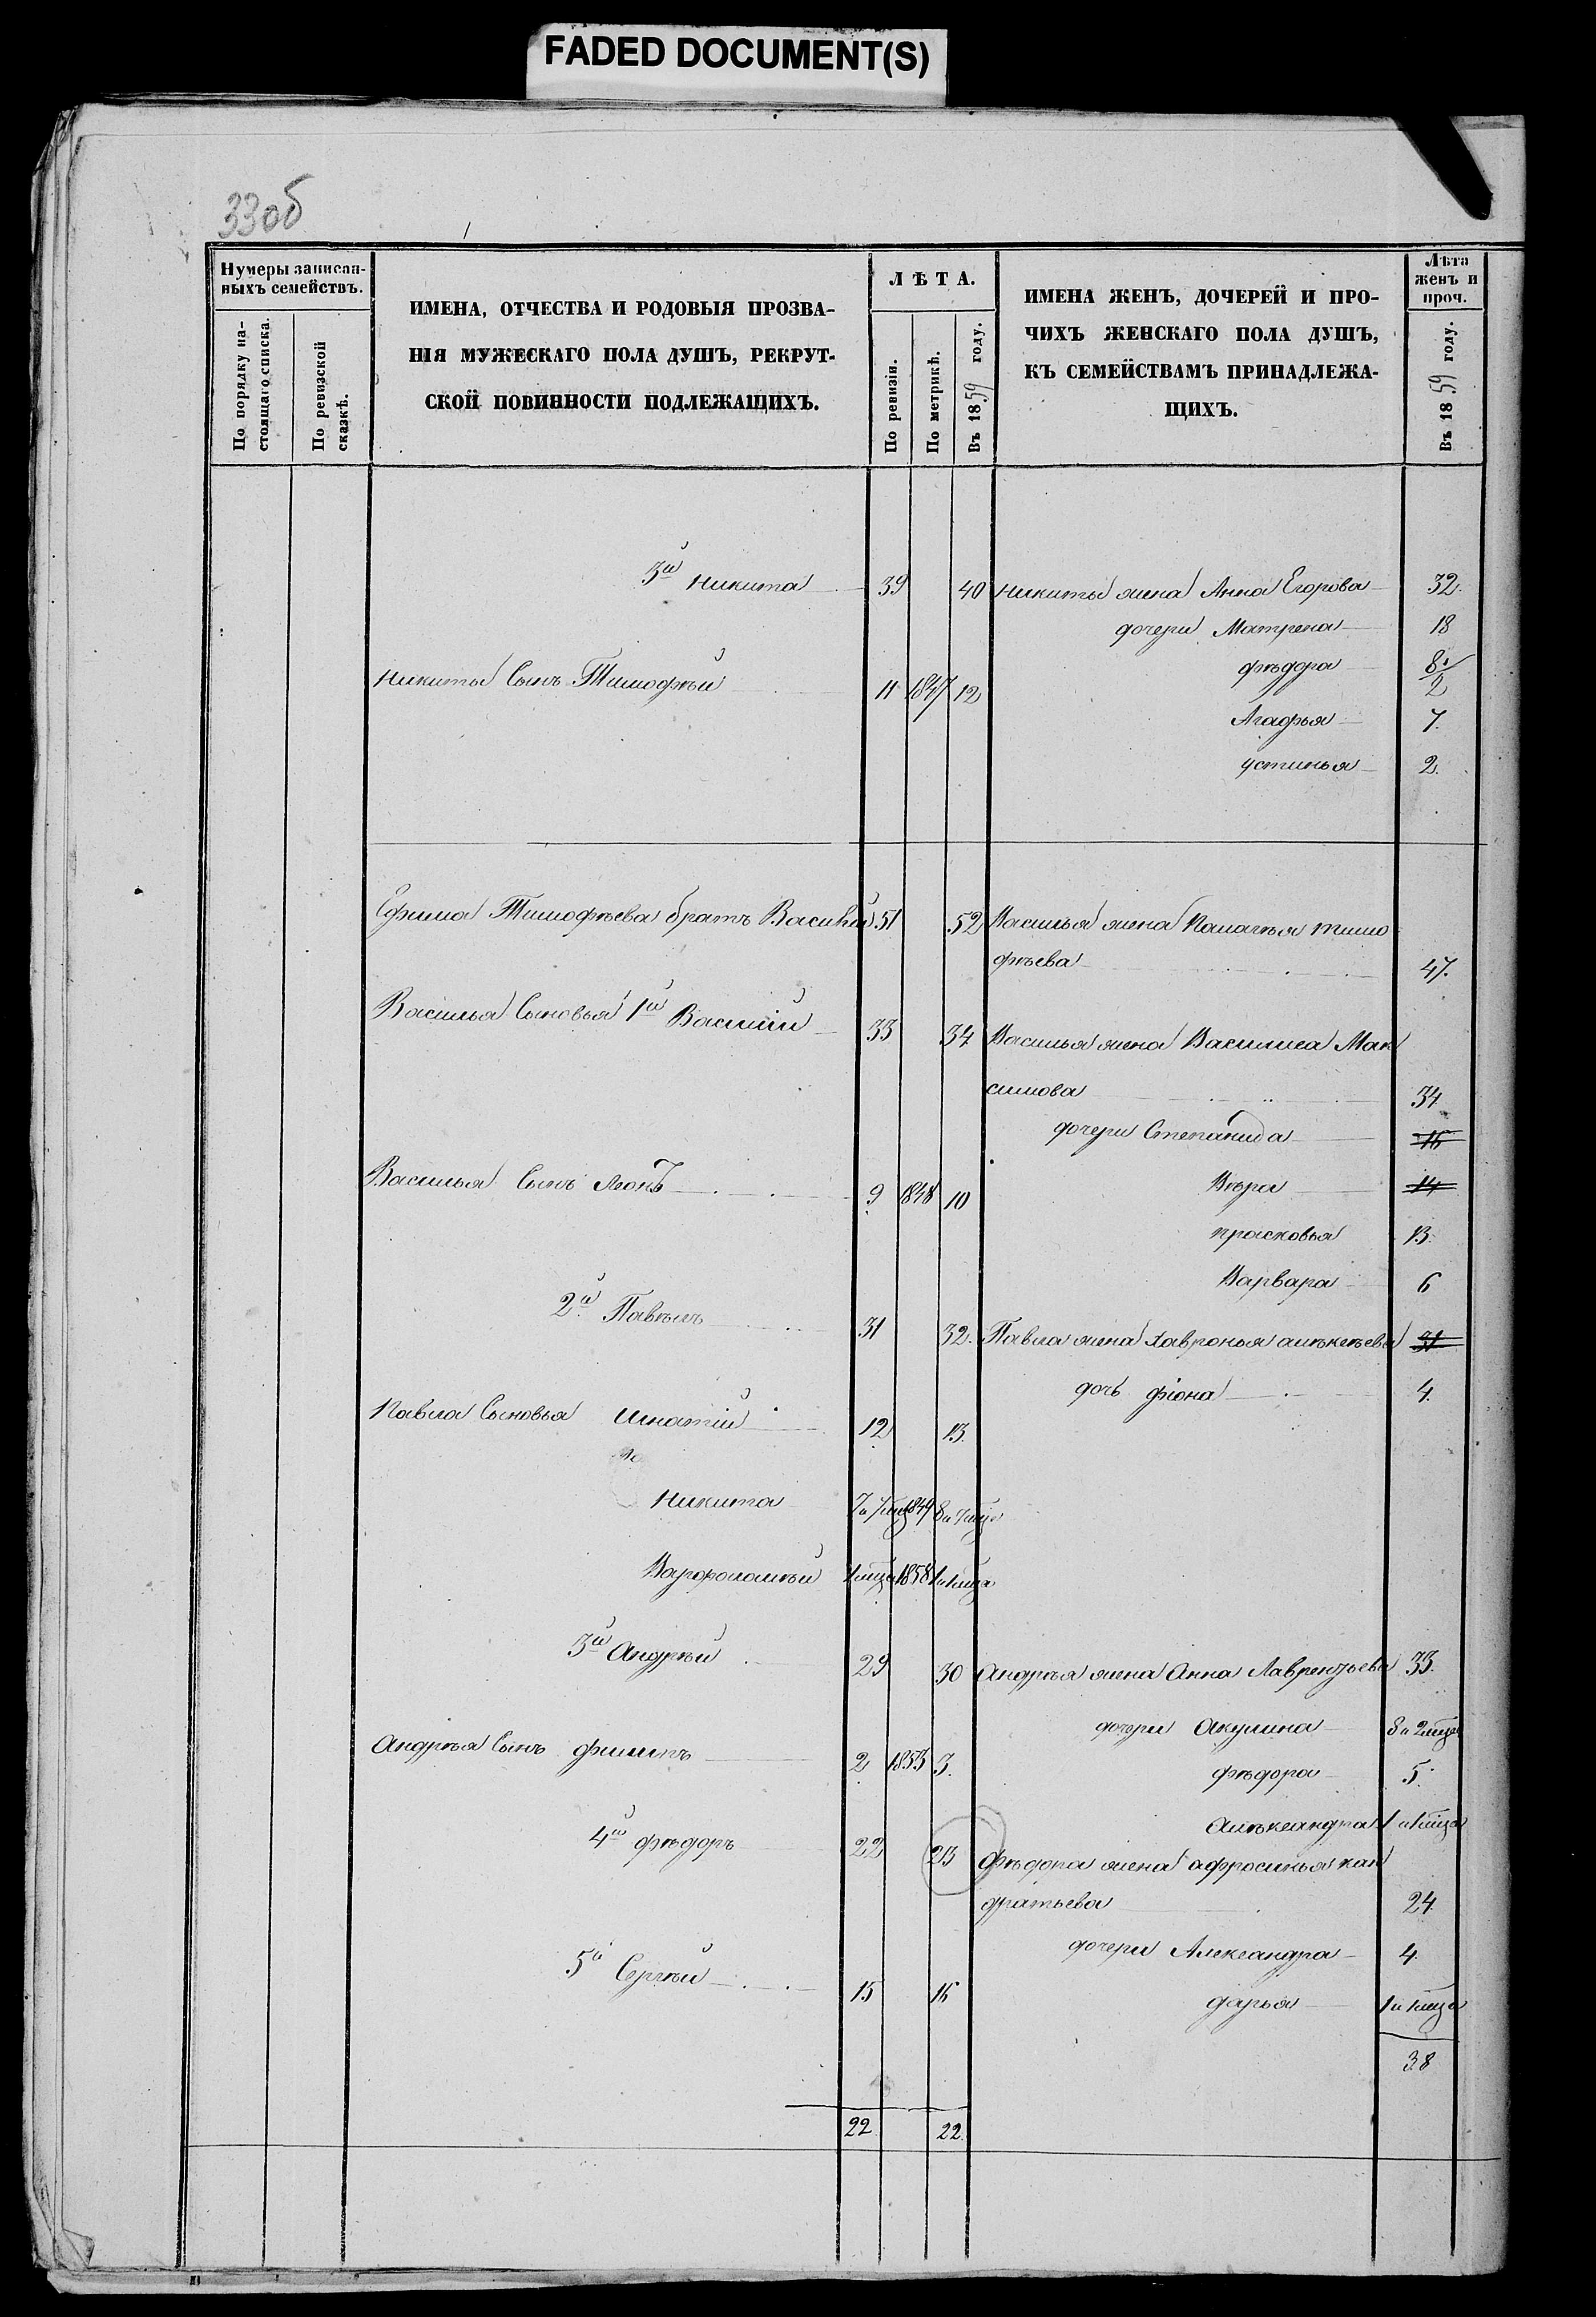 FADED DOCUMENT(S)
33об
Нумеры записан-
ныхъ семействъ.
По порядку на-
стоящаго списка.
По ревизской
сказкѣ.
ИМЕНА, ОТЧЕСТВА И РОДОВЫЯ ПРОЗВА-
НІЯ МУЖЕСКАГО ПОЛА ДУШЪ, РЕКРУТ-
СКОЙ ПОВИННОСТИ ПОДЛЕЖАЩИХЪ.
ЛѢТА.
По ревизіи.
По метрикѣ.
Въ 1859 году.
ИМЕНА ЖЕНЪ, ДОЧЕРЕЙ И ПРО-
ЧИХЪ ЖЕНСКАГО ПОЛА ДУШЪ,
КЪ СЕМЕЙСТВАМЪ ПРИНАДЛЕЖА-
ЩИХЪ.
Лѣта
женъ и
проч.
Въ 1859 году.
3й Никита 39 40 Никиты жена Анна Егорова 32.
дочери Матрена 18
Никиты Сынъ Тимофѣй 11 1847 12 фѣдора 8 1/2
Агафья 7.
устинья 2.
Ефима Тимофѣева братъ Василій 51 52 Василья жена Палагѣя тимо
фѣева 47.
Василья Сыновья 1й Василій 33 34 Василья жена Василиса Мак
симова 34
дочери Степанида 16
Василья Сынъ Леонъ 9 1848 10 Вѣра 14
прасковья 13.
Варвара 6
2й Павѣлъ 31 32. Павла жена Хавронья алѣкѣева 31
дочь фіона 4.
Павла Сыновья Игнатій 12 13.
Никита 7 и 7 мца 1849 8 и 7 мца
Варфоломѣй 1 мца 1858 1 и 1 мца
3й Андрѣй 29 30 Андрѣя жена Анна Лаврентьева 33.
дочери Акулина 8 и 2 мца
Андрѣя Сынъ филипъ 2 1853 3. фѣдора 5.
Алѣксандра 1 и 1 мца
4й фѣдоръ 22 23 Фѣдора жена афросинья кан
дратьева 24
дочери Александра 4.
5й Сергѣй 15 16 дарья 1 и 1 мца
38
22 22.